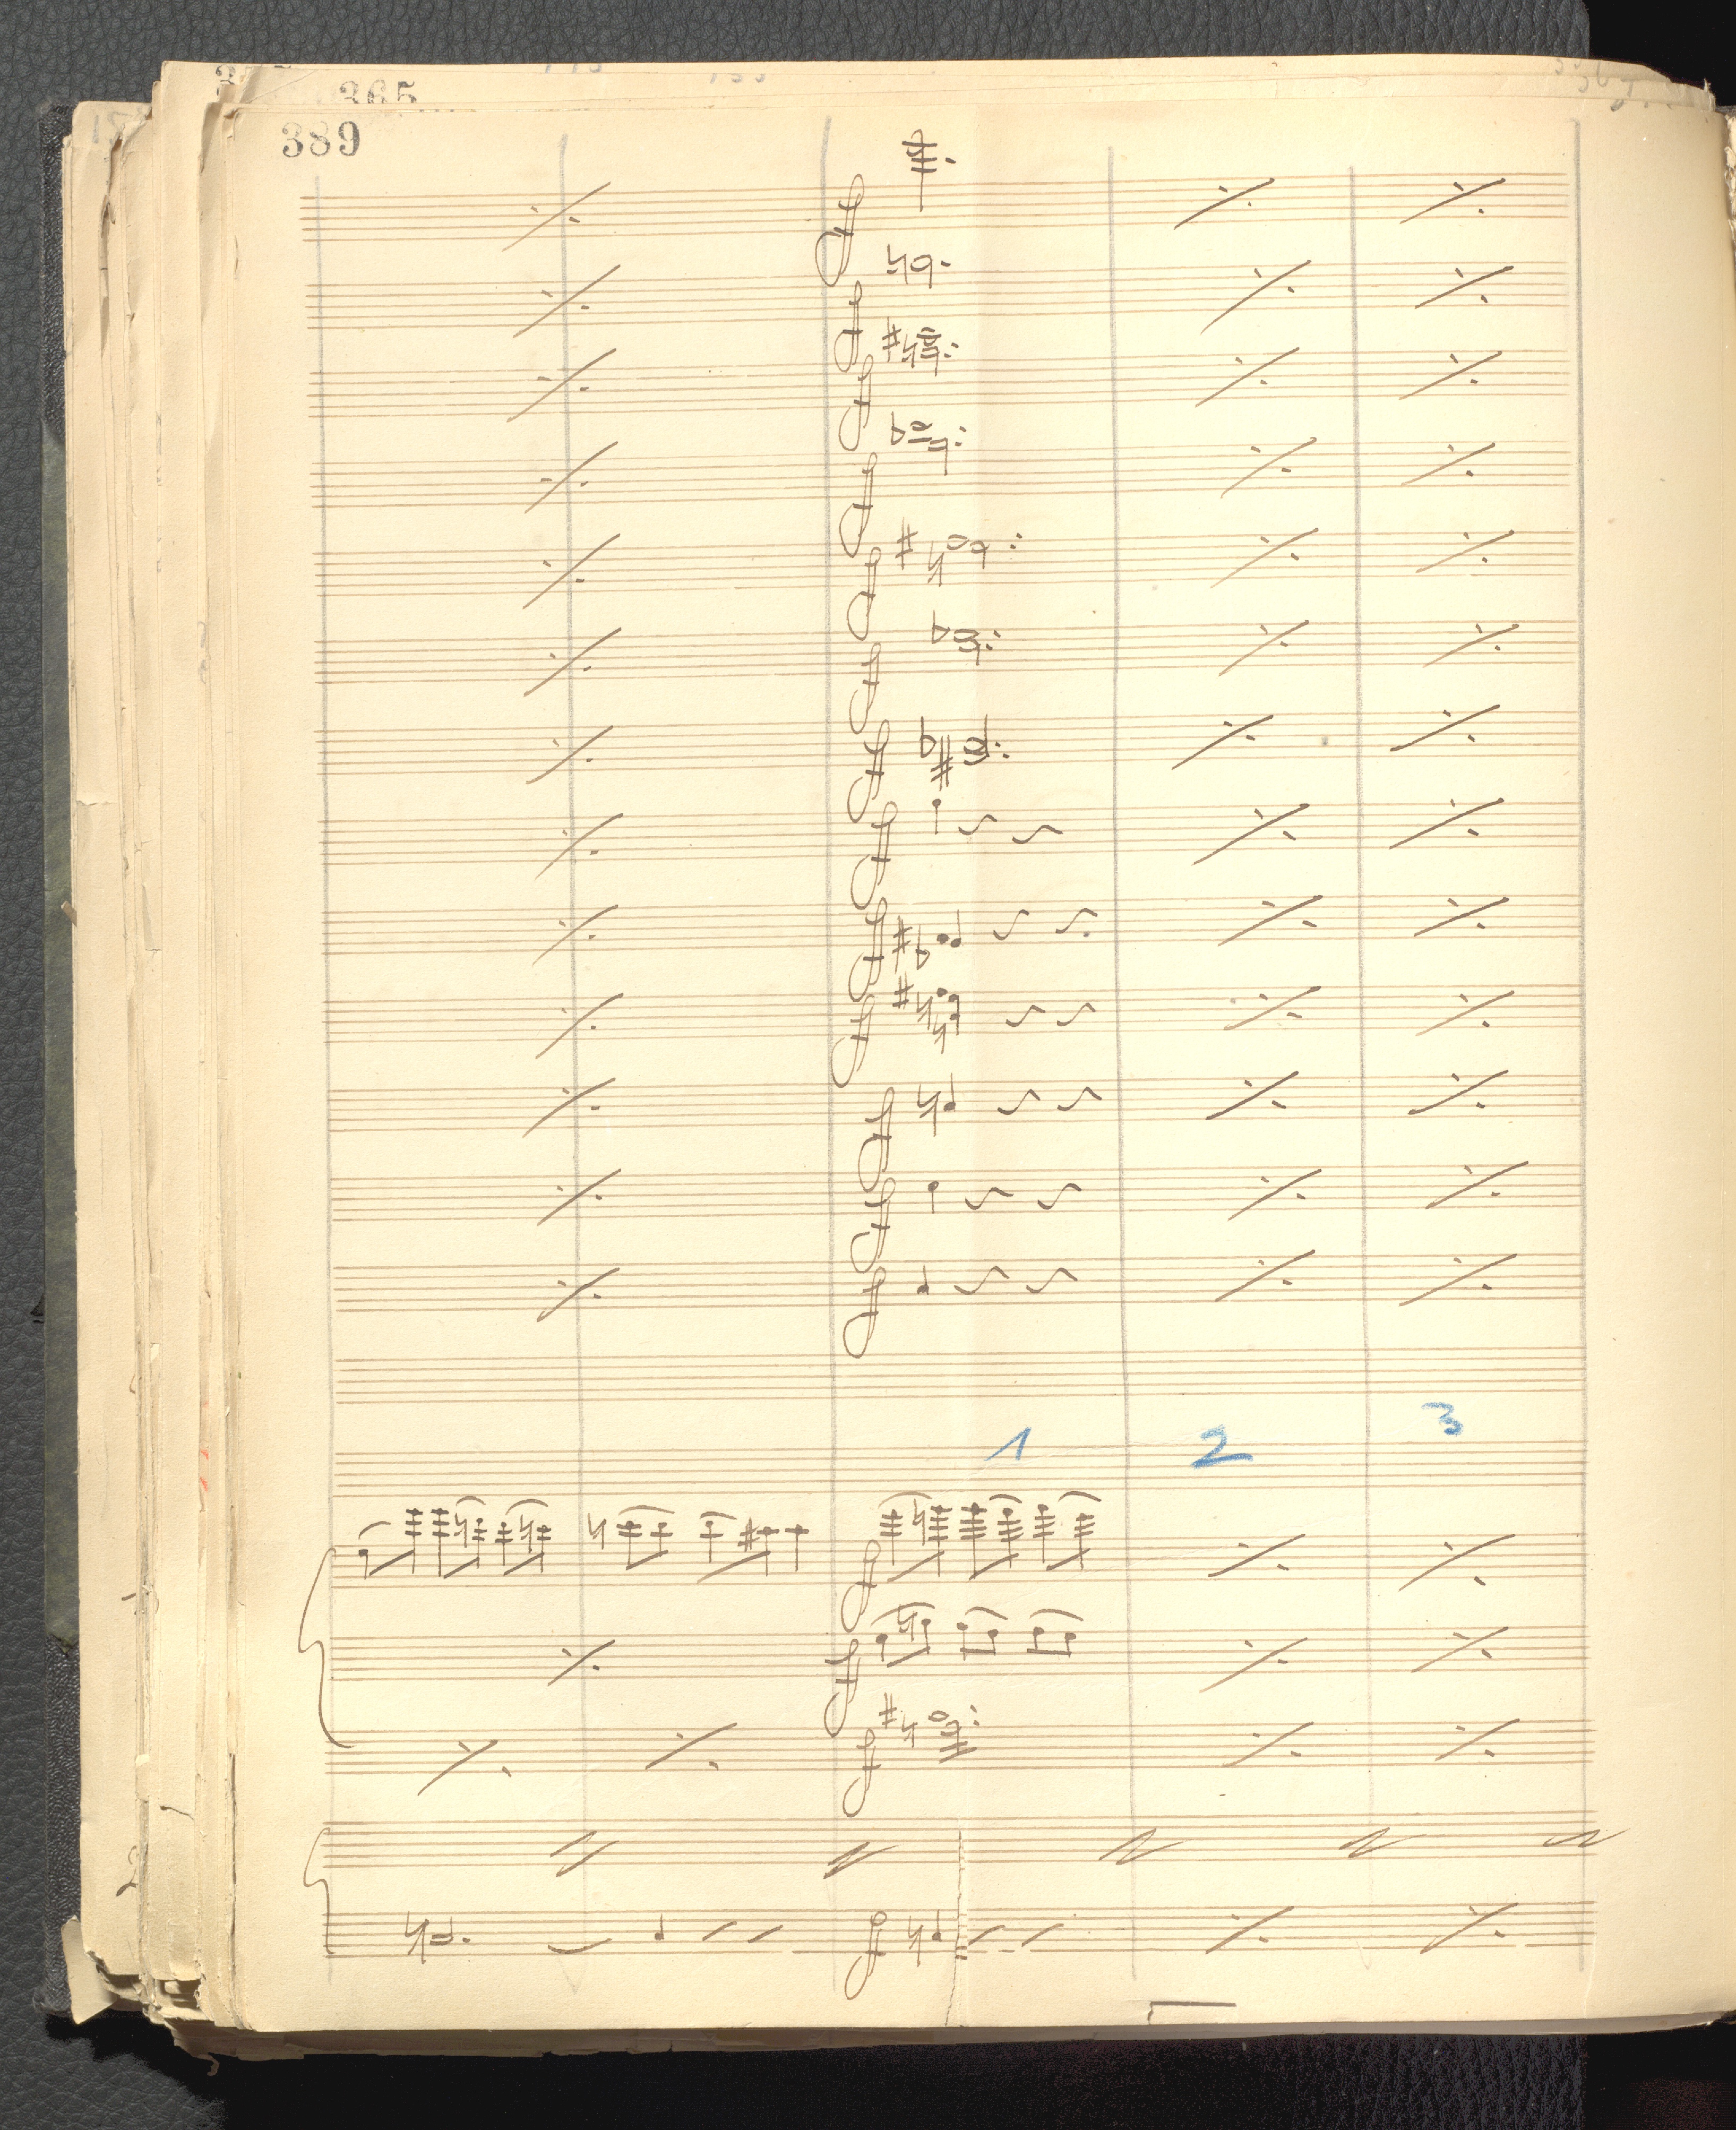 365
389
f
f
f
f
f
f
f
f
f
f
f
f
f
1 2 3
f
f
f
f